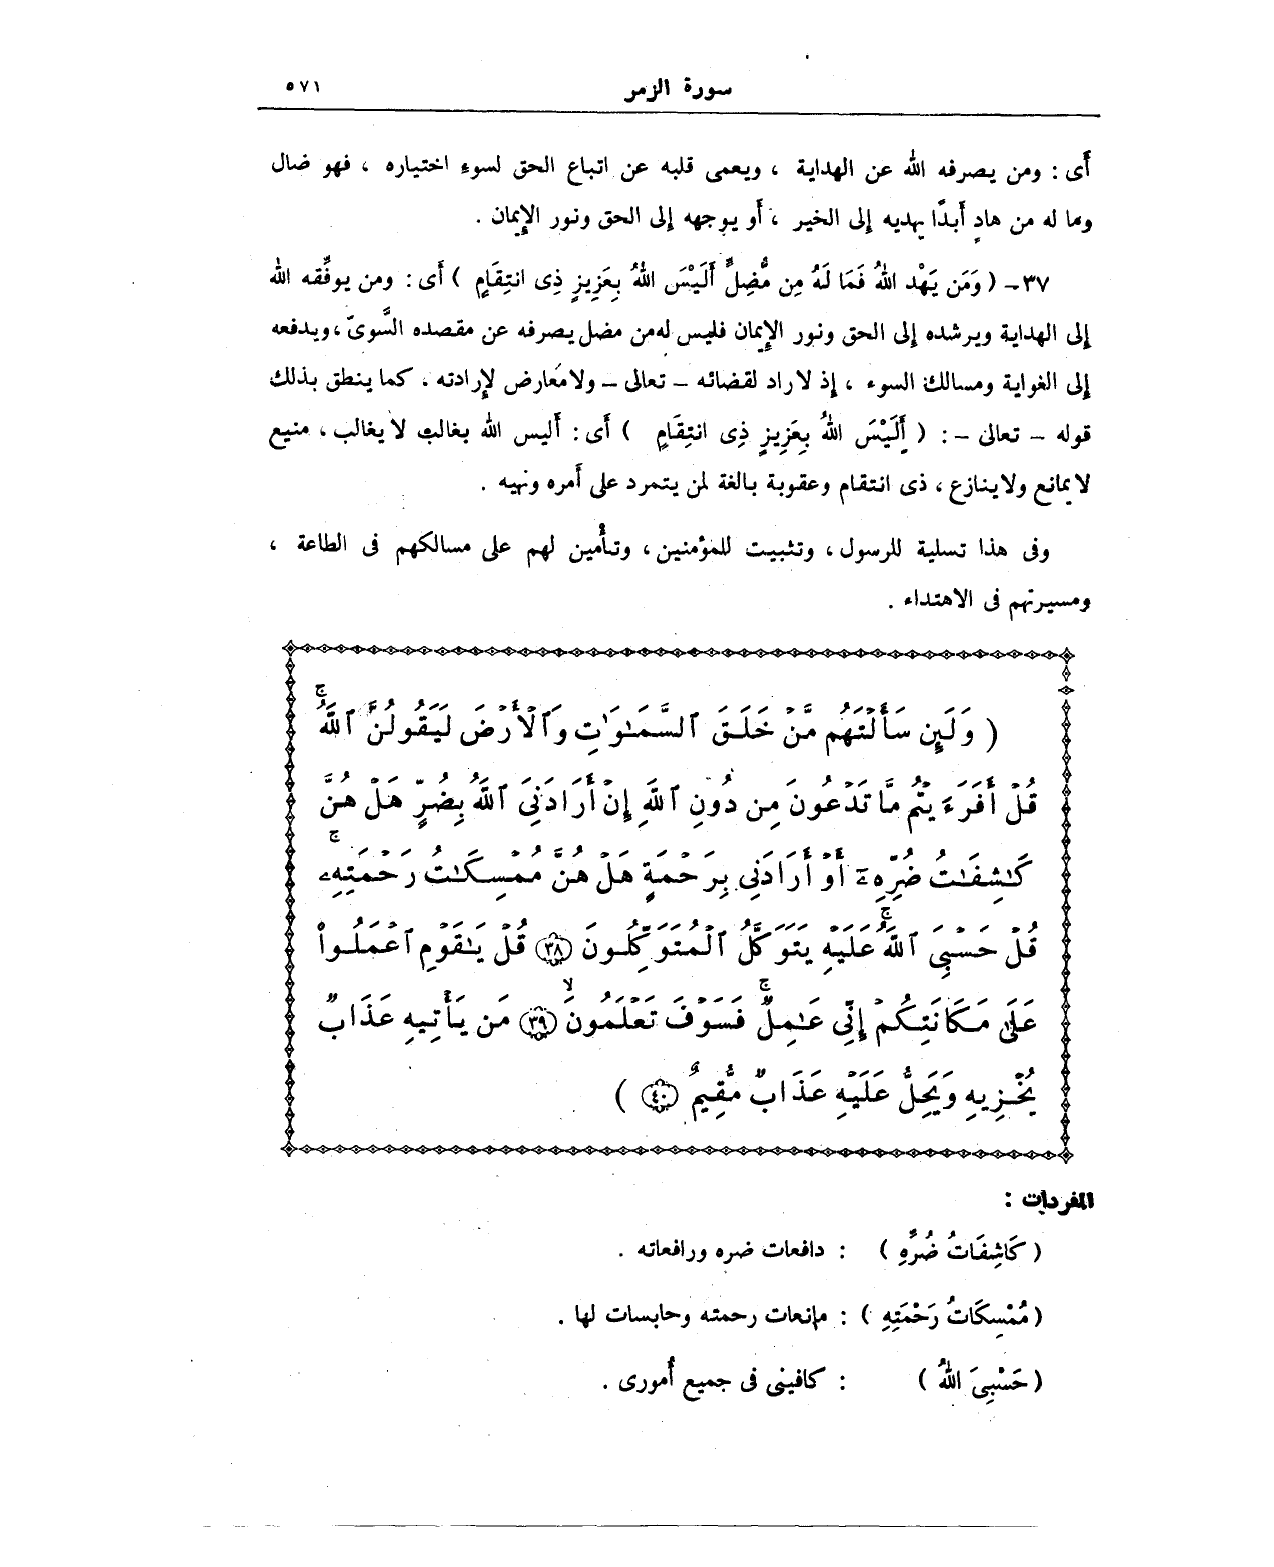 سورة الزمر ٥٧١
أَى : ومن يصرفه الله عن الهداية ، ويعمى قلبه عن اتباع الحق لسوء اختياره ، فهو ضال
وما له من هادٍ أَبدًا يهديه إلى الخير ، أَو يوجهه إلى الحق ونور الإِيمان .
٣٧- ( وَمَن يَهْدِ اللهُ فَمَا لَهُ مِن مُّضِلٍّ أَلَيْسَ اللهُ بِعَزِيزٍ ذِى انتِقَامٍ ) أَى : ومن يوفِّقه الله
إلى الهداية ويرشده إلى الحق ونور الإِيمان فليس له من مضل يصرفه عن مقصده السَّوىّ ، ويدفعه
إلى الغواية ومسالك السوء ، إذ لا راد لقضائه - تعالى - ولا مُعارض لإِرادته ، كما ينطق بذلك
قوله - تعالى - : ( أَلَيْسَ اللهُ بِعَزِيزٍ ذِى انتِقَامٍ ) أَى : أَليس الله بغالب لا يغالب ، منيع
لا يمانع ولا ينازع ، ذى انتقام وعقوبة بالغة لمن يتمرد على أَمره ونهيه .
وفى هذا تسلية للرسول ، وتثبيت للمؤمنين ، وتأْمين لهم على مسالكهم فى الطاعة ،
ومسيرتهم فى الاهتداء .
( وَلَئِن سَأَلْتَهُم مَّنْ خَلَقَ ٱلسَّمَـٰوَٰتِ وَٱلْأَرْضَ لَيَقُولُنَّ ٱللَّهُ ۚ
قُلْ أَفَرَءَيْتُم مَّا تَدْعُونَ مِن دُونِ ٱللَّهِ إِنْ أَرَادَنِىَ ٱللَّهُ بِضُرٍّ هَلْ هُنَّ
كَـٰشِفَـٰتُ ضُرِّهِۦٓ أَوْ أَرَادَنِى بِرَحْمَةٍ هَلْ هُنَّ مُمْسِكَـٰتُ رَحْمَتِهِۦ ۚ
قُلْ حَسْبِىَ ٱللَّهُ ۚ عَلَيْهِ يَتَوَكَّلُ ٱلْمُتَوَكِّلُونَ ﴿٣٨﴾ قُلْ يَـٰقَوْمِ ٱعْمَلُوا۟
عَلَىٰ مَكَانَتِكُمْ إِنِّى عَـٰمِلٌ ۚ فَسَوْفَ تَعْلَمُونَ ۙ ﴿٣٩﴾ مَن يَأْتِيهِ عَذَابٌ
يُخْزِيهِ وَيَحِلُّ عَلَيْهِ عَذَابٌ مُّقِيمٌ ﴿٤٠﴾ )
المفردات :
( كَاشِفَاتُ ضُرِّهِ ) : دافعات ضره ورافعاته .
( مُمْسِكَاتُ رَحْمَتِهِ ) : مانعات رحمته وحابسات لها .
( حَسْبِىَ اللهُ ) : كافينى فى جميع أُمورى .